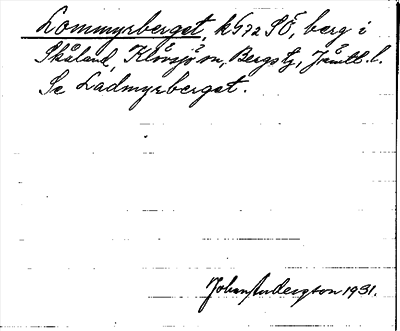 Lommyrberget, k 572 SÖ, berg i
Skåland, Klövsjö sn, Bergs tg, Jämtl. l.
Se Ladmyrberget.
Johan Anderson 1931.